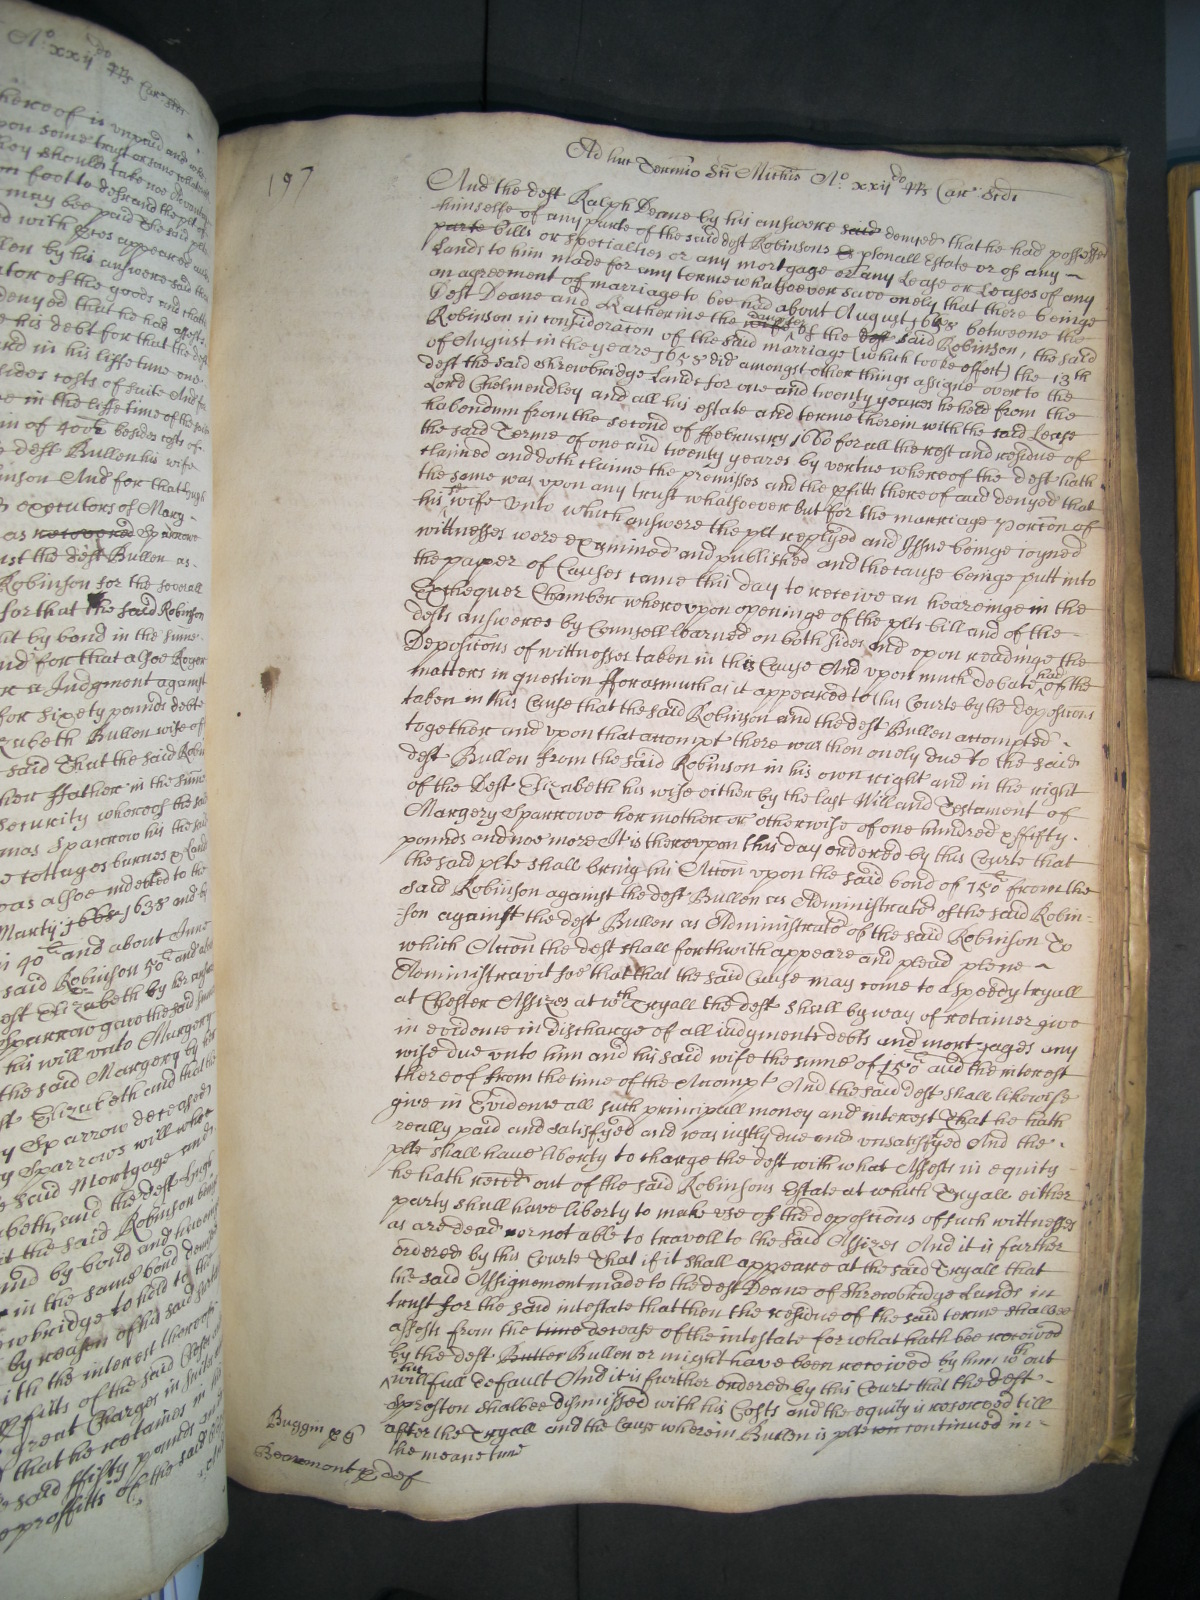 Ao xxijdo RRs Cari Scdi
hereof is unpaid and
pon some trust or some
they should take noe advantage
on foot to deft and the plt
may bee paid The said
d with appeared and
llen by his answere said that
tor of the goods and chattells
denyed that he had assetts
e his debt for that the deft
ard in his liffe tyme one
sides costs of suite And for
e in the liffe time of the said
in of 400li besides costs of
deft Bullen his wife
inson And for that
executors of Mary
as recovered Sparrowe
nst the deft Bullen as
Robinson for the severall
for that the said Robinson
by bond in the summe
nd for that alsoe Roger
a Judgment against
for sixety pounds debt
zabeth Bullen wife of
said That the said Robin
her ffather in the summe
Security whereof the said
mas Sparrow his the said
cottages barnes & Lands
was alsoe indebted to the
Marty 1665 1638 and
in 40li and about Anno
said Robinson 50li and
Elizabeth by her answere
Sparrow gave the said
his will unto Margery
the said Margery by
Elizabeth and that
y Sparrow deceased
y Sparrows will
said Mortgage and
abeth, and the deft Hugh
it the said Robinson being
and by bond and
in the same bond
wbridge to hold to the
by reason of his said
ith the interest thereof
pffitts of the said
great Charges in Suits
that he retaines in
said ffifty pounds
proffitts of the said
197
Ad huc Termio Sti Michis Ao xxijdo RRs Cari Scdi
And the deft Ralph Deane by his answere said denyed that he had possessed
himselfe of any parte of the said deft Robinsons psonall Estate or of any
parte bills or specialties or any mortgage or any Lease or Leases of any
Lands to him made for any terme whatsoever save onely that there beinge
an agreement of marriage to bee had about August betweene the
Deft Deane and Katherine the wife daughter of the deft said Robinson, the said
Robinson in consideraton of the said marriage (which tooke effect) the 13th
of August in the yeare 1658 did amongst other things assigne over to the
deft the said Shrewbridge Lands for one and twenty yeares he held from the
Lord Cholmendley and all his estate and terme therein with the said Lease
habendum from the second of ffebruary 1660 for all the rest and residue of
the said Terme of one and twenty yeares by vertue whereof the deft hath
claimed and doth claime the premisses and the pffitts thereof and denyed that
the same was upon any trust whatsoever but for the marriage porcon of
his sd wife Unto which answere the plt replyed and Issue beinge ioyned
wittnesses were examined and published and the cause beinge putt into
the paper of Causes came this day to receive an hearinge in the
Exchequer Chamber whereupon openinge of the plts bill and of the
defts answeres by Counsell learned on both sides And upon readinge the
Depositons of wittnesses taken in this Cause And upon much debate had of the
matters in question fforasmuch as it appeared to this Courte by the depositions
taken in this Cause that the said Robinson and the deft Bullen accompted
together and upon that accompt there was then onely due to the said
deft Bullen from the said Robinson in his own right and in the right
of the Deft Elizabeth his wife either by the last Will and Testament of
Margery Sparrowe her mother or otherwise of one hundred & ffifty
pounds and noe more It is thereupon this day ordered by this Courte that
the said plts shall bring his Accon upon the said bond of 150li from the
said Robinson against the deft Bullen as Administrator of the said Robin-
=son against the deft Bullen as Administrator of the said Robinson To
which Accon the deft shall forthwith appeare and plead plene
Administravit soe that that the said Cause may come to a speedy tryall
at Chester Assizes at wch Tryall the deft shall by way of retainer give
in evidence in discharge of all iudgments debts and mortgages any
wise due unto him and his said wife the sume of 150li and the interest
thereof from the time of the Accompt And the said deft shall likewise
give in Evidence all such principall money and interest That he hath
really paid and satisfyed and was iustly due and unsatisfyed And the
plts shall have liberty to charge the deft with what Assetts in equity
he hath reced out of the said Robinsons Estate at which Tryall either
party shall have liberty to make use of the depositions of such wittnesses
as are dead or not able to travell to the said Assizes And it is further
ordered by this Courte That if it shall appeare at the said Tryall that
the said Assignement made to the deft Deane of Shrewbridge Lands in
trust for the said intestate that then the residue of the said terme shalbee
assetts from the time decease of the intestate for what hath bee received
by the deft Butler Bullen or might have been received by him wthout
his willfull Default And it is further ordered by this Courte that the deft
Sproston shalbee dismissed with his Costs and the equity is reserved till
after the Tryall and the Cause wherein Bullen is plt continued in
the meane time
Buggin p Q
Beaumont p def